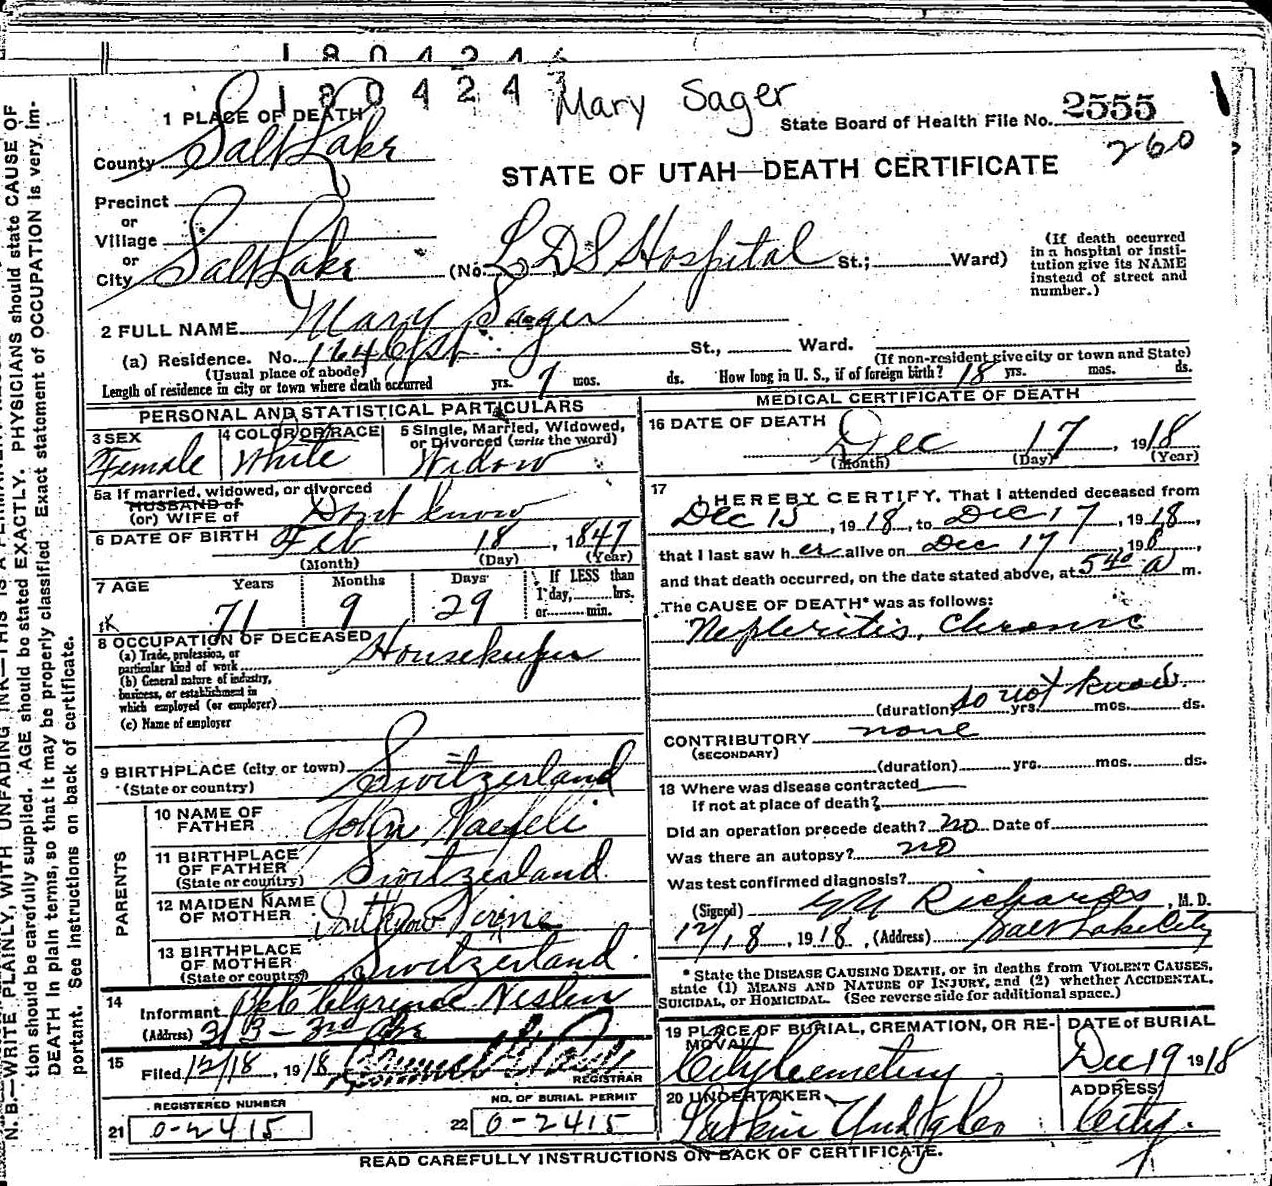 1804246
180424
Mary Sager
State Board of Health File No. 2555
260
1 PLACE OF DEATH
County Salt Lake
STATE OF UTAH—DEATH CERTIFICATE
Precinct
or
Village
or
City Salt Lake (No. LDS Hospital St.; Ward)
(If death occurred in a hospital or insti-
tution give its NAME
instead of street and
number.)
2 FULL NAME Mary Sager
(a) Residence. No. St., Ward.
(Usual place of abode) (If non-resident give city or town and State)
Length of residence in city or town where death occurred yrs. 7 mos. ds. How long in U. S., if of foreign birth? 18 yrs. mos. ds.
PERSONAL AND STATISTICAL PARTICULARS
3 SEX Female
4 COLOR OR RACE White
5 Single, Married, Widowed,
or Divorced (write the word)
Widow
5a If married, widowed, or divorced
HUSBAND of
(or) WIFE of Dont know
6 DATE OF BIRTH Feb 18, 1847
(Month) (Day) (Year)
7 AGE Years Months Days If LESS than
1 day, hrs.
or min.
71 9 29
8 OCCUPATION OF DECEASED Housekeeper
(a) Trade, profession, or
particular kind of work
(b) General nature of industry,
business, or establishment in
which employed (or employer)
(c) Name of employer
9 BIRTHPLACE (city or town)
(State or country) Switzerland
PARENTS
10 NAME OF
FATHER John Naegeli
11 BIRTHPLACE
OF FATHER
(State or country) Switzerland
12 MAIDEN NAME
OF MOTHER
13 BIRTHPLACE
OF MOTHER
(State or country) Switzerland
14
Informant Clarence Neslen
(Address) 313 - 3rd Ave
15
Filed 12/18, 1918
REGISTRAR
REGISTERED NUMBER
21 0-2415
NO. OF BURIAL PERMIT
22 0-2415
MEDICAL CERTIFICATE OF DEATH
16 DATE OF DEATH Dec 17, 1918
(Month) (Day) (Year)
17
I HEREBY CERTIFY, That I attended deceased from
Dec 15, 1918, to Dec 17, 1918,
that I last saw her alive on Dec 17 198,
and that death occurred, on the date stated above, at 540 a m.
The CAUSE OF DEATH* was as follows:
Nephritis, Chronic
(duration) do not know yrs. mos. ds.
CONTRIBUTORY none
(SECONDARY)
(duration) yrs. mos. ds.
18 Where was disease contracted
if not at place of death?
Did an operation precede death? no Date of
Was there an autopsy? no
Was test confirmed diagnosis?
(Signed) Richards, M. D.
12/18, 1918, (Address) Salt Lake City
* State the DISEASE CAUSING DEATH, or in deaths from VIOLENT CAUSES,
state (1) MEANS AND NATURE OF INJURY, and (2) whether ACCIDENTAL,
SUICIDAL, or HOMICIDAL. (See reverse side for additional space.)
19 PLACE OF BURIAL, CREMATION, OR RE-
MOVAL
City Cemetery
DATE of BURIAL
Dec 19 1918
20 UNDERTAKER
ADDRESS
City.
READ CAREFULLY INSTRUCTIONS ON BACK OF CERTIFICATE.
N. B.—WRITE PLAINLY, WITH UNFADING INK—THIS IS A PERMANENT
tion should be carefully supplied. AGE should be stated EXACTLY. PHYSICIANS should state CAUSE OF
DEATH in plain terms, so that it may be properly classified. Exact statement of OCCUPATION is very im-
portant. See instructions on back of certificate.